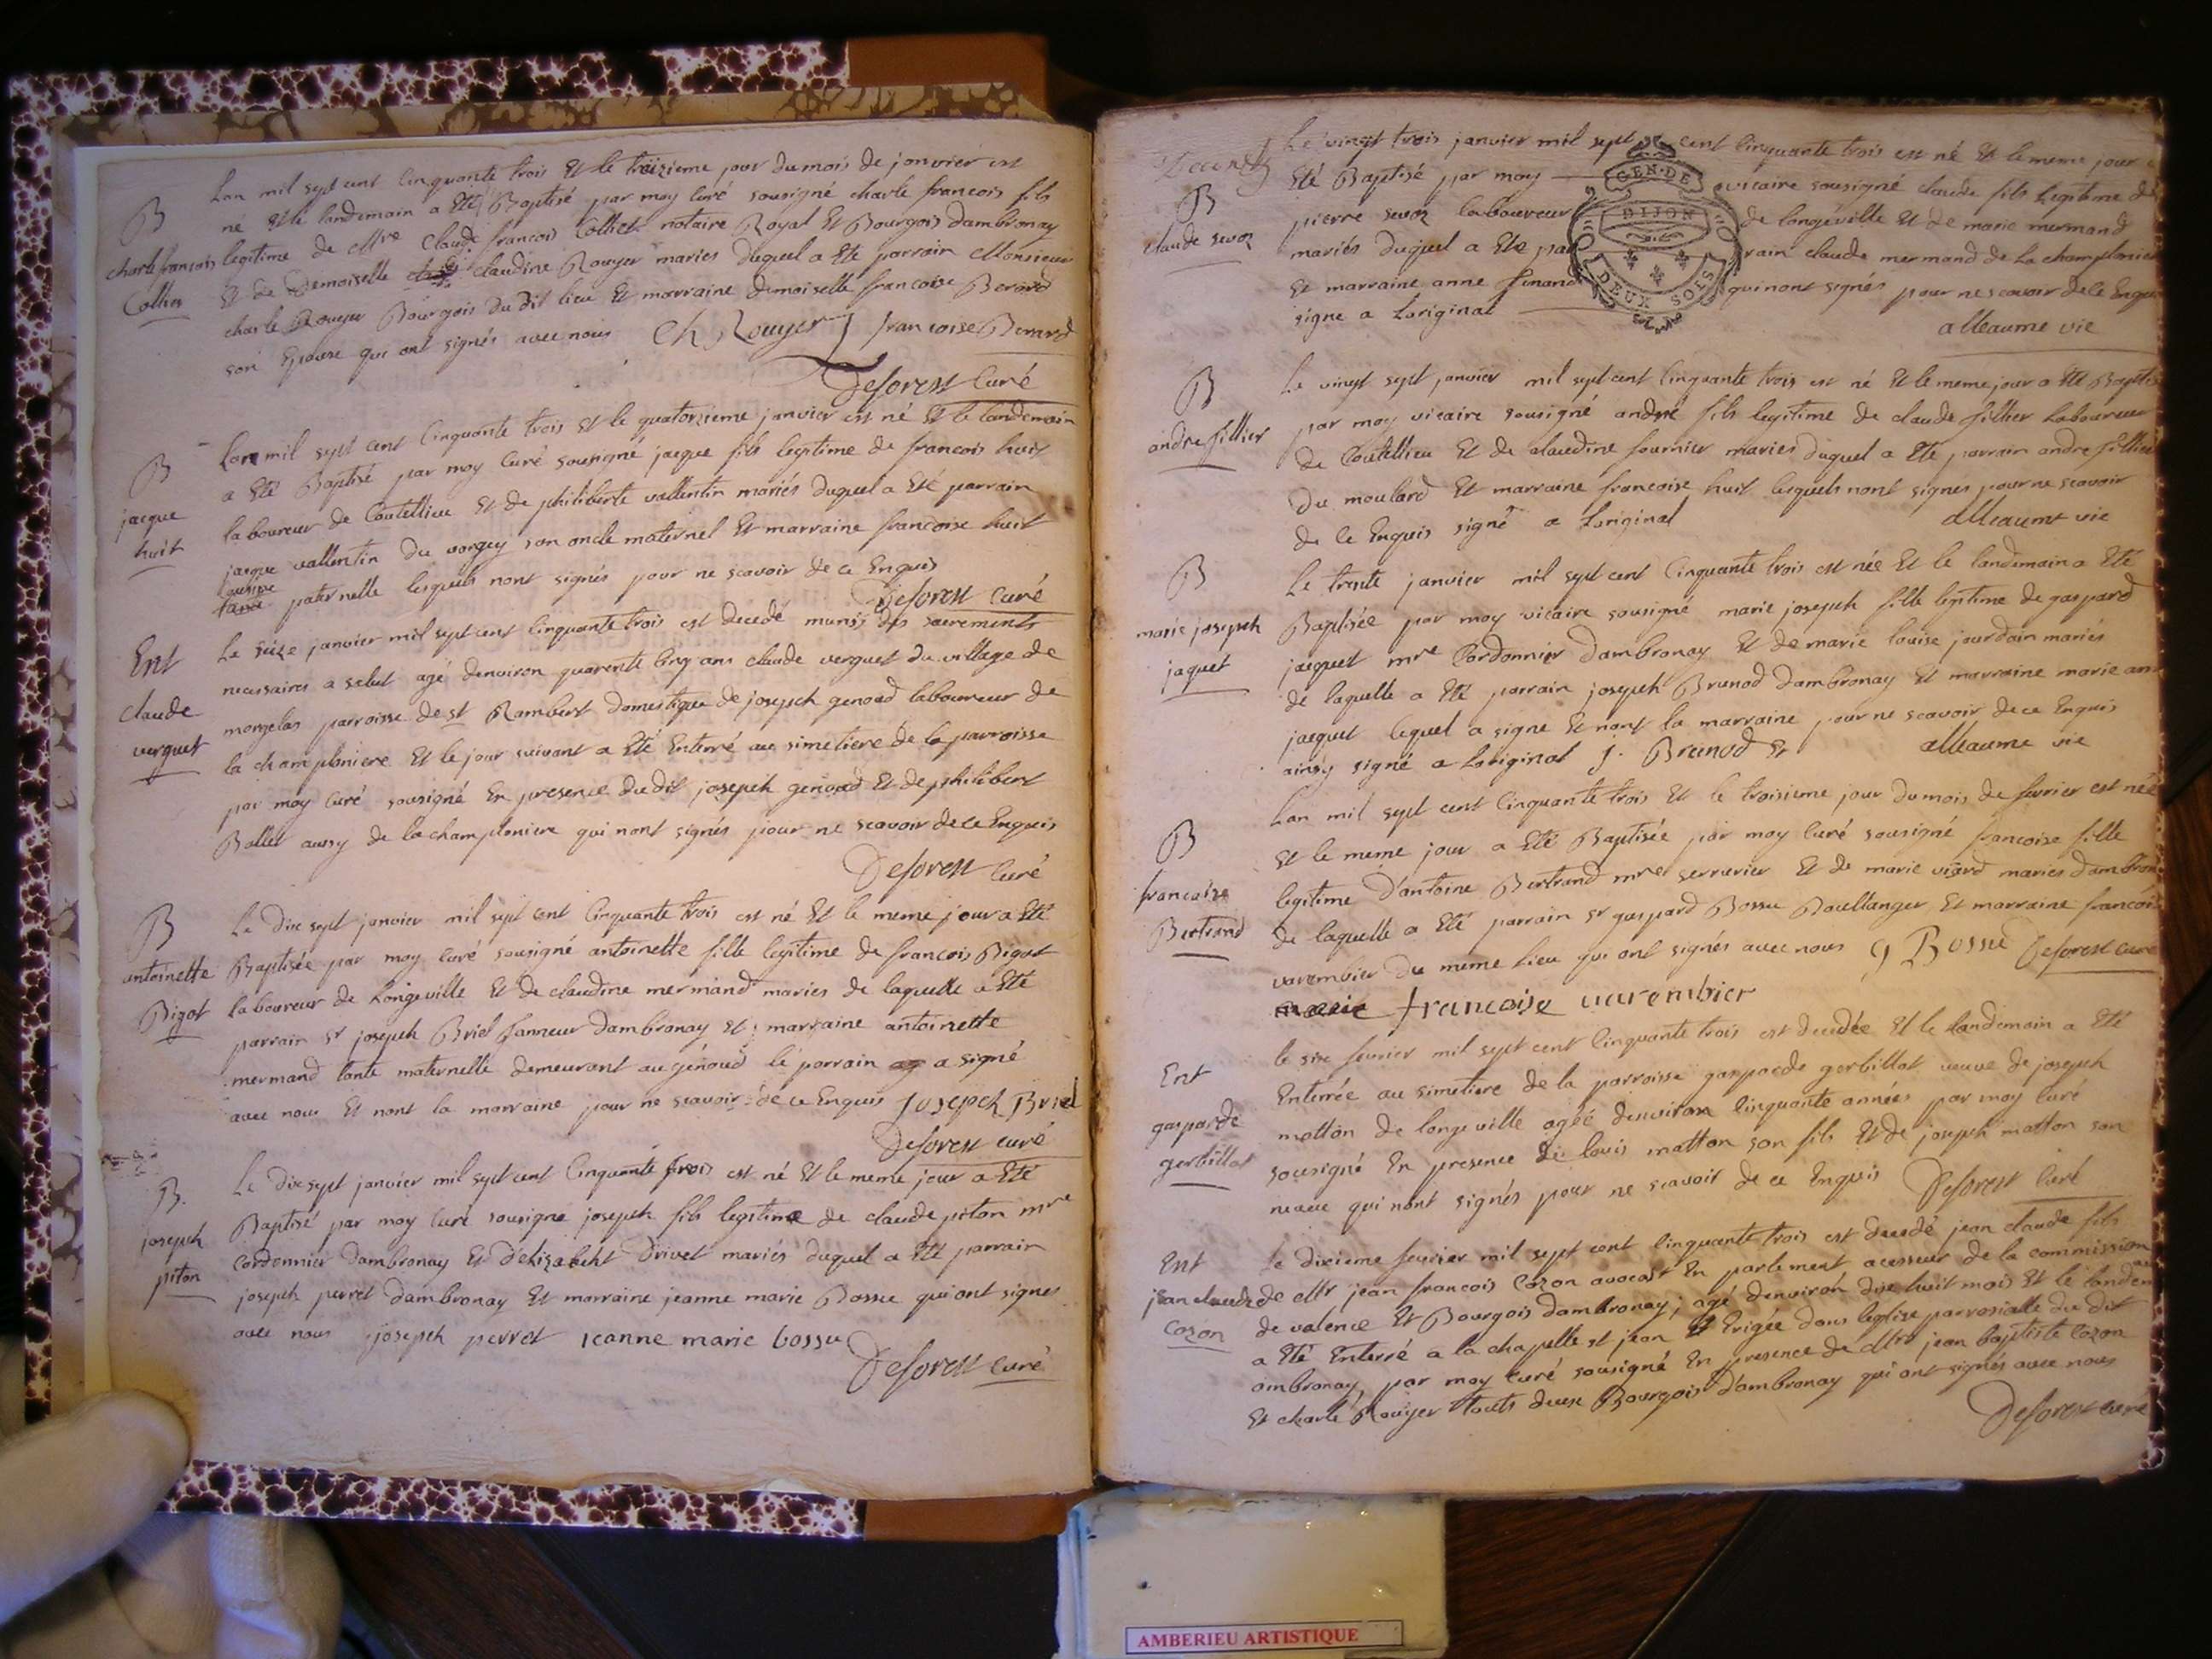 Lan mil sept cent Cinquante trois Et le treizieme jour du mois de janvier est
né et le landemain a Eté Baptisé par moy Curé sousigné charle francois fils
legitime de Mre Claude francois Colliet notaire Royal Et Bourgois dambronay
Et de Demoiselle claudine Rouyer maries duquel a Eté parrain Monsieur
charle Rouyer Bourgois du dit lieu Et marraine demoiselle francoise Berard
son Epouse qui ont signés avec nous Ch Rouyer francoise Berard
Deforest Curé
B
charle francois
Collier
Lan mil sept cent Cinquante trois Et le quatorzieme janvier est né Et le landemain
a Eté Baptisé par moy Curé sousigné jacque fils legitime de francois huit
laboureur de Coutellieu Et de philiberte vallentin mariés duquel a Eté parrain
jacque vallentin du vorgey son oncle maternel Et marraine francoise huit
Cousine
tante paternelle lesquels nont signés pour ne scavoir de ce Enquis
Deforest Curé
B
jacque
huit
Le seize janvier mil sept cent Cinquante trois est decedé munis des sacrements
necessaires a salut agé denviron quarente Cinq ans claude verguet du village de
morgelas parroisse de st Rambert domestique de joseph genoud laboureur de
la champloniere Et le jour suivant a Eté Enterré au simetiere de la parroisse
par moy Curé sousigné En presence du dit joseph genoud Et de philibert
Ballet aussy de la champloniere qui nont signés pour ne scavoir de ce Enquis
Deforest Curé
Ent
claude
verguet
Le dix sept janvier mil sept cent Cinquante trois est né Et le meme jour a Eté
Baptisée par moy Curé sousigné antoinette fille legitime de francois Bigot
laboureur de Longeville Et de claudine mermand maries de laquelle a Eté
parrain sr joseph Briel fanneur dambronay Et marraine antoinette
mermand tante maternelle demeurant au genoud le parrain a signé
avec nous Et nont la marraine pour ne scavoir de ce Enquis Joseph Briel
Deforest curé
B
antoinette
Bigot
Le dix sept janvier mil sept cent Cinquante trois est né Et le meme jour a Eté
Baptisé par moy Curé sousigné joseph fils legitime de claude piton mre
Cordonnier dambronay Et delizabeht drivet mariés duquel a Eté parrain
joseph perret dambronay Et marraine jeanne marie Bossu qui ont signés
avec nous joseph perret jeanne marie bossu
Deforest Curé
B.
joseph
piton
Le vingt trois janvier mil sept cent Cinquante trois est né Et le meme jour a
Eté Baptisé par moy vicaire sousigné claude fils legitime de
pierre sevoz laboureur de longeville Et de marie mermand
mariés duquel a Eté parrain claude mermand de la champloniere
Et marraine anne qui nont signés pour ne scavoir de ce Enquis
signe a Loriginal
alleaume vic
GEN · DE
DIJON
DEUX SOLS
B
claude sevoz
Le vingt sept janvier mil sept cent Cinquante trois est né Et le meme jour a Eté Baptisé
par moy vicaire sousigné andré fils legitime de claude fillier Laboureur
de Coutellieu Et de claudine fournier maries duquel a Eté parrain andre fillier
du moulard Et marraine francoise huit lesquels nont signés pour ne scavoir
de ce Enquis signé a Loriginal alleaume vic
B
andre fillier
Le trente janvier mil sept cent Cinquante trois est née Et le landemain a Eté
Baptisée par moy vicaire sousigné marie joseph fille legitime de gaspard
jacquet mre Cordonnier dambronay Et de marie louise jourdain mariés
de laquelle a Eté parrain joseph Brunod dambronay Et marraine marie an
jacquet lequel a signe Et nont la marraine pour ne scavoir de ce Enquis
ainsy signé a Loriginal J. Brunod Et alleaume vic
B
marie joseph
jaquet
Lan mil sept cent Cinquante trois Et le troisieme jour du mois de fevrier est née
Et le meme jour a Eté Baptisée par moy Curé sousigné francoise fille
legitime d'antoine Bertrand mre serrurier Et de marie viard maries dambron
de laquelle a Eté parrain sr gaspard Bossu Boullanger Et marraine francoi
varembier du meme lieu qui ont signés avec nous g Bossu Deforest curé
marie francoise varembier
B
francoise
Bertrand
le six fevrier mil sept cent Cinquante trois est decedée Et le landemain a Eté
Enterrée au simetiere de la parroisse gasparde gerbillot veuve de joseph
motton de longeville agée denviron Cinquante années par moy Curé
sousigné En presence de louis motton son fils Et de joseph motton son
neveu qui nont signés pour ne scavoir de ce Enquis Deforest Curé
Ent
gasparde
gerbillot
Le dixieme fevrier mil sept cent Cinquante trois est decedé jean claude fils
de Mr jean francois Cozon avocat En parlement acesseur de la commission
de valence Et Bourgois dambronay, agé denviron dix huit mois Et le landem
a Eté Enterré a la chapelle st jean Erigée dans leglise parrosialle du dit
ambronay, par moy Curé sousigné En presence de Mr jean baptiste Cozon
Et charle Rouyer touts deux Bourgois d'ambronay qui ont signés avec nous
Deforest curé
Ent
jean claude
Cozon
AMBERIEU ARTISTIQUE